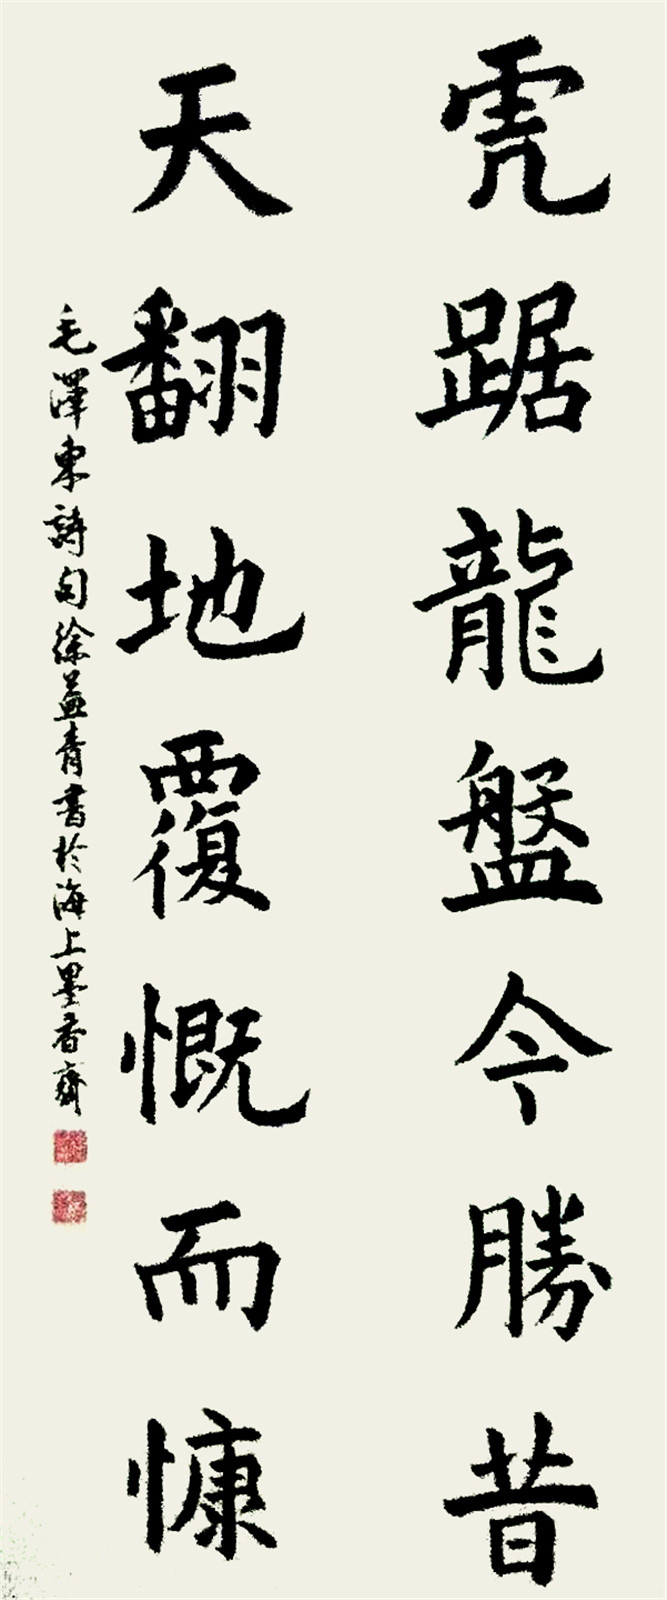 虎踞龍盤今勝昔
天翻地覆慨而慷
毛澤東詩句徐益青書於海上墨香齋